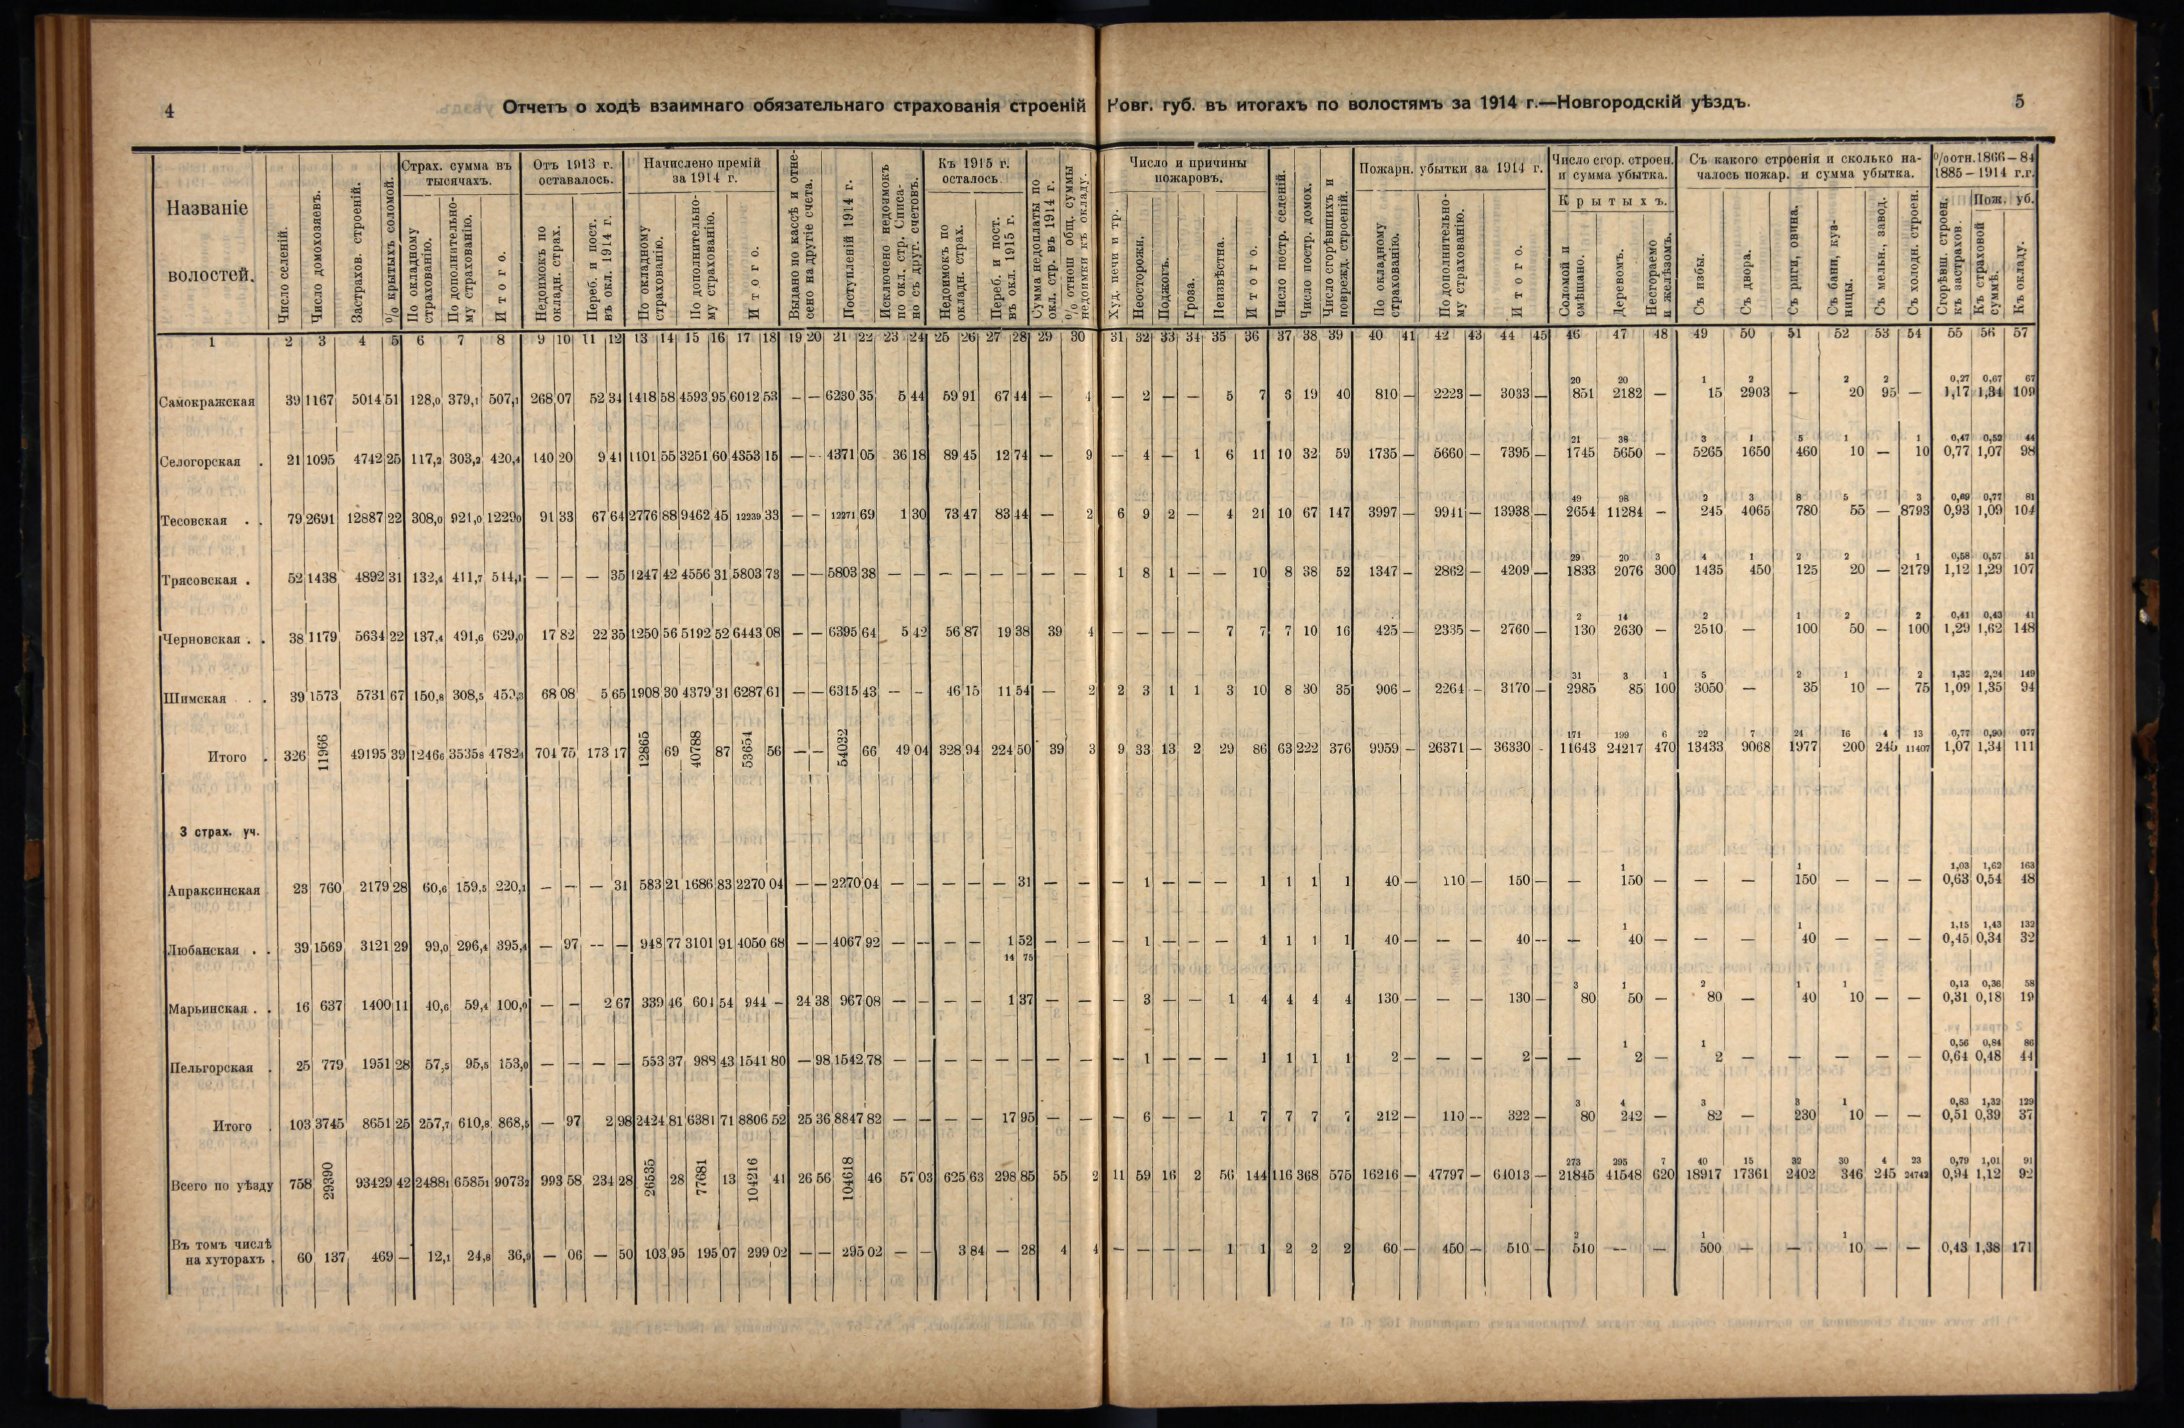 4
Отчетъ о ходѣ взаимнаго обязательнаго страхованія строеній
Новг. губ. въ итогахъ по волостямъ за 1914 г.—Новгородскій уѣздъ.
5
Названіе волостей.
Число селеній.
Число домохозяевъ.
Застрахов. строеній.
% крытыхъ соломой.
Страх. сумма въ тысячахъ.
По окладному страхованію.
По дополнительному страхованію.
Итого.
Отъ 1913 г. оставалось.
Недоимокъ по окладн. страх.
Переб. и пост. въ окл. 1914 г.
Начислено премій за 1914 г.
По окладному страхованію.
По дополнительному страхованію.
Итого.
Выдано по кассѣ и отнесено на другіе счета.
Поступленій 1914 г.
Исключено недоимокъ по окл. стр. Списано съ друг. счетовъ.
Къ 1915 г. осталось.
Недоимокъ по окладн. страх.
Переб. и пост. въ окл. 1915 г.
Сумма недоплаты по окл. стр. въ 1914 г.
% отнош общ. суммы недоимки къ окладу.
Число и причины пожаровъ.
Худ. печи и тр.
Неосторожн.
Поджогъ.
Гроза.
Неизвѣстна.
Итого.
Число постр. селеній.
Число постр. домох.
Число сгорѣвшихъ и поврежд. строеній.
Пожарн. убытки за 1914 г.
По окладному страхованію.
По дополнительному страхованію.
Итого.
Число сгор. строен. и сумма убытка.
Крытыхъ.
Соломой и смѣшано.
Деревомъ.
Несгораемо и желѣзомъ.
Съ какого строенія и сколько началось пожар. и сумма убытка.
Съ избы.
Съ двора.
Съ риги, овина.
Съ бани, кузницы.
Съ мельн., завод.
Съ холодн. строен.
% отн. 1866—84 1885—1914 г.г.
Сгорѣвш. строен. къ застрахов.
Пож. уб.
Къ страховой суммѣ.
Къ окладу.
1 2 3 4 5 6 7 8 9 10 11 12 13 14 15 16 17 18 19 20 21 22 23 24 25 26 27 28 29 30 31 32 33 34 35 36 37 38 39 40 41 42 43 44 45 46 47 48 49 50 51 52 53 54 55 56 57
20 20 1 2 2 2 0,27 0,67 67
Самокражская 39 1167 5014 51 128,0 379,1 507,1 268 07 52 34 1418 58 4593 95 6012 53 — — 6230 35 5 44 59 91 67 44 — 4 — 2 — — 5 7 6 19 40 810 — 2223 — 3033 — 851 2182 — 15 2903 — 20 95 — 1,17 1,34 109
21 38 3 1 5 1 1 0,47 0,52 44
Селогорская . 21 1095 4742 25 117,2 303,2 420,4 140 20 9 41 1101 55 3251 60 4353 15 — — 4371 05 36 18 89 45 12 74 — 9 — 4 — 1 6 11 10 32 59 1735 — 5660 — 7395 — 1745 5650 — 5265 1650 460 10 — 10 0,77 1,07 98
49 98 2 3 8 5 3 0,69 0,77 81
Тесовская . . 79 2691 12887 22 308,0 921,0 1229,0 91 33 67 64 2776 88 9462 45 12239 33 — — 12271 69 1 30 73 47 83 44 — 2 6 9 2 — 4 21 10 67 147 3997 — 9941 — 13938 — 2654 11284 — 245 4065 780 55 — 8793 0,93 1,09 104
29 20 3 4 1 2 2 1 0,58 0,57 51
Трясовская . 52 1438 4892 31 132,4 411,7 544,1 — — — 35 1247 42 4556 31 5803 73 — — 5803 38 — — — — — — — — 1 8 1 — — 10 8 38 52 1347 — 2862 — 4209 — 1833 2076 300 1435 450 125 20 — 2179 1,12 1,29 107
2 14 2 1 2 2 0,41 0,43 41
Черновская . . 38 1179 5634 22 137,4 491,6 629,0 17 82 22 35 1250 56 5192 52 6443 08 — — 6395 64 5 42 56 87 19 38 39 4 — — — — 7 7 7 10 16 425 — 2335 — 2760 — 130 2630 — 2510 — 100 50 — 100 1,29 1,62 148
31 3 1 5 2 1 2 1,32 2,24 149
Шимская . . 39 1573 5731 67 150,8 308,5 459,3 68 08 5 65 1908 30 4379 31 6287 61 — — 6315 43 — — 46 15 11 54 — 2 2 3 1 1 3 10 8 30 35 906 — 2264 — 3170 — 2985 85 100 3050 — 35 10 — 75 1,09 1,35 94
171 199 6 22 7 24 16 4 13 0,77 0,90 077
Итого . 326 11966 49195 39 1246,6 3535,8 4782,4 704 75 173 17 12865 69 40788 87 53654 56 — — 54032 66 49 04 328 94 224 50 39 3 9 33 13 2 29 86 63 222 376 9959 — 26371 — 36330 - 11643 24217 470 13433 9068 1977 200 245 11407 1,07 1,34 111
3 страх. уч.
1 1 1,03 1,62 163
Апраксинская 23 760 2179 28 60,6 159,5 220,1 — — — 31 583 21 1686 83 2270 04 — — 2270 04 — — — — — 31 — — — 1 — — — 1 1 1 1 40 — 110 — 150 — — 150 — — — 150 — — — 0,63 0,54 48
1 1 1,15 1,43 132
Любанская . . 39 1569 3121 29 99,0 296,4 395,4 — 97 — — 948 77 3101 91 4050 68 — — 4067 92 — — — — 1 52 — — — 1 — — — 1 1 1 1 40 — — — 40 — — 40 — — — 40 — — — 0,45 0,34 32
14 75
3 1 2 1 1 0,13 0,36 58
Марьинская . . 16 637 1400 11 40,6 59,4 100,0 — — 2 67 339 46 604 54 944 — 24 38 967 08 — — — — 1 37 — — — 3 — — 1 4 4 4 4 130 — — — 130 — 80 50 — 80 — 40 10 — — 0,31 0,18 19
1 1 0,56 0,84 86
Пельгорская . 25 779 1951 28 57,5 95,5 153,0 — — — — 553 37 988 43 1541 80 — 98 1542 78 — — — — — — — — — 1 — — — 1 1 1 1 2 — — — 2 — — 2 — 2 — — — — — 0,64 0,48 44
3 4 3 3 1 0,83 1,32 129
Итого . 103 3745 8651 25 257,7 610,8 868,5 — 97 2 98 2424 81 6381 71 8806 52 25 36 8847 82 — — — — 17 95 — — — 6 — — 1 7 7 7 7 212 — 110 — 322 — 80 242 — 82 — 230 10 — — 0,51 0,39 37
273 295 7 40 15 32 30 4 23 0,79 1,01 91
Всего по уѣзду 758 29390 93429 42 2488,1 6585,1 9073,2 993 58 234 28 26535 28 77681 13 104216 41 26 56 104618 46 57 03 625 63 298 85 55 2 11 59 16 2 56 144 116 368 575 16216 — 47797 — 64013 — 21845 41548 620 18917 17361 2402 346 245 24742 0,94 1,12 92
2 1 1
Въ томъ числѣ на хуторахъ . 60 137 469 — 12,1 24,8 36,9 — 06 — 50 103 95 195 07 299 02 — — 295 02 — — 3 84 — 28 4 4 — — — — 1 1 2 2 2 60 — 450 — 510 — 510 — — 500 — — 10 — — 0,43 1,38 171